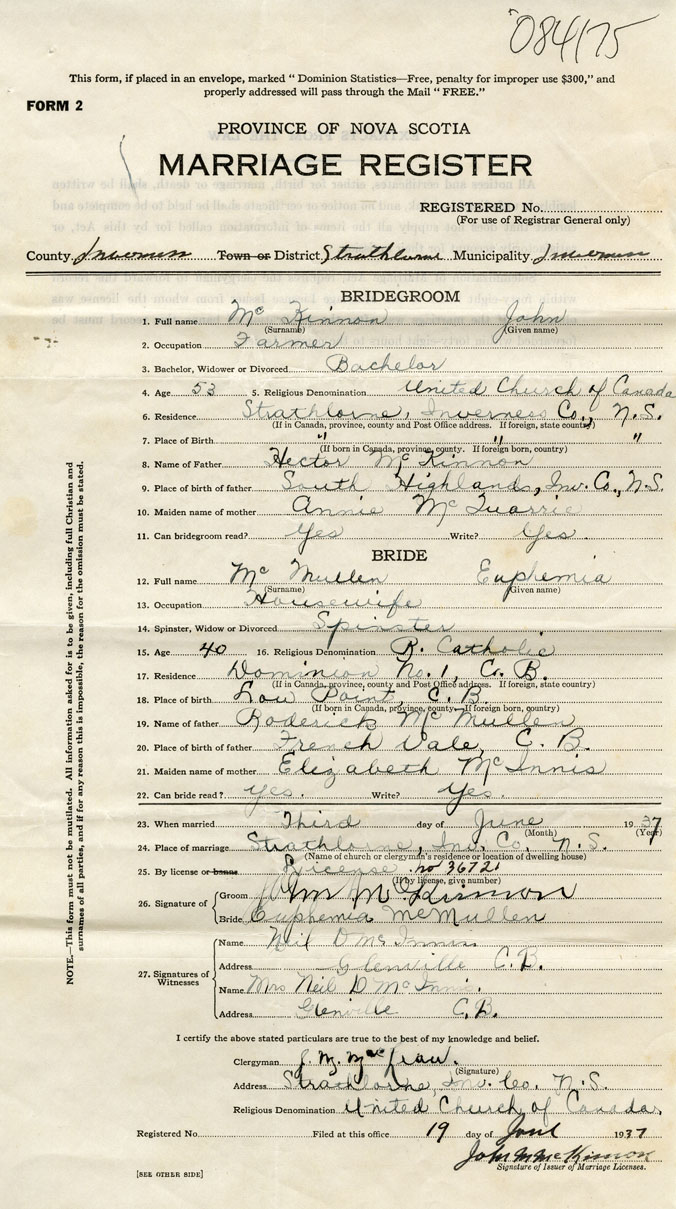 084175
This form, if placed in an envelope, marked " Dominion Statistics—Free, penalty for improper use $300," and
properly addressed will pass through the Mail " FREE."
FORM 2
PROVINCE OF NOVA SCOTIA
MARRIAGE REGISTER
REGISTERED No.
(For use of Registrar General only)
County Inverness Town or District Strathlorne Municipality Inverness
BRIDEGROOM
1. Full name Mc Kinnon John
(Surname) (Given name)
2. Occupation Farmer
3. Bachelor, Widower or Divorced Bachelor
4. Age 53 5. Religious Denomination United Church of Canada
6. Residence Strathlorne, Inverness Co., N.S.
(If in Canada, province, county and Post Office address. If foreign, state county)
7. Place of Birth " " "
(If born in Canada, province, county. If foreign born, country)
8. Name of Father Hector McKinnon
9. Place of birth of father South Highlands, Inv. Co., N.S.
10. Maiden name of mother Annie McQuarrie
11. Can bridegroom read? Yes Write? Yes.
BRIDE
12. Full name Mc Mullen Euphemia
(Surname) (Given name)
13. Occupation Housewife
14. Spinster, Widow or Divorced Spinster
15. Age 40 16. Religious Denomination R. Catholic
17. Residence Dominion No. 1, C. B.
(If in Canada, province, county and Post Office address. If foreign, state country)
18. Place of birth Low Point, C. B.
(If born in Canada, province, county—If foreign born, country)
19. Name of father Roderick McMullen
20. Place of birth of father French Vale, C. B.
21. Maiden name of mother Elizabeth McInnis
22. Can bride read? Yes. Write? Yes.
23. When married Third day of June 1937
(Month) (Year)
24. Place of marriage Strathlorne, Inv. Co. N. S.
(Name of church or clergyman's residence or location of dwelling house)
25. By license or banns License. no 36721
(If by license, give number)
26. Signature of Groom McKinnon
Bride Euphemia McMullen
27. Signatures of Witnesses
Name Neil D McInnis
Address Glenville C.B.
Name Mrs Neil D McInnis.
Address Glenville C.B.
I certify the above stated particulars are true to the best of my knowledge and belief.
Clergyman
(Signature)
Address Strathlorne, Inv. Co. N. S.
Religious Denomination United Church of Canada.
Registered No. Filed at this office 19 day of 1937
John M McKinnon
Signature of Issuer of Marriage Licenses.
[SEE OTHER SIDE]
NOTE.—This form must not be mutilated. All information asked for is to be given, including full Christian and
surnames of all parties, and if for any reason this is impossible, the reason for the omission must be stated.